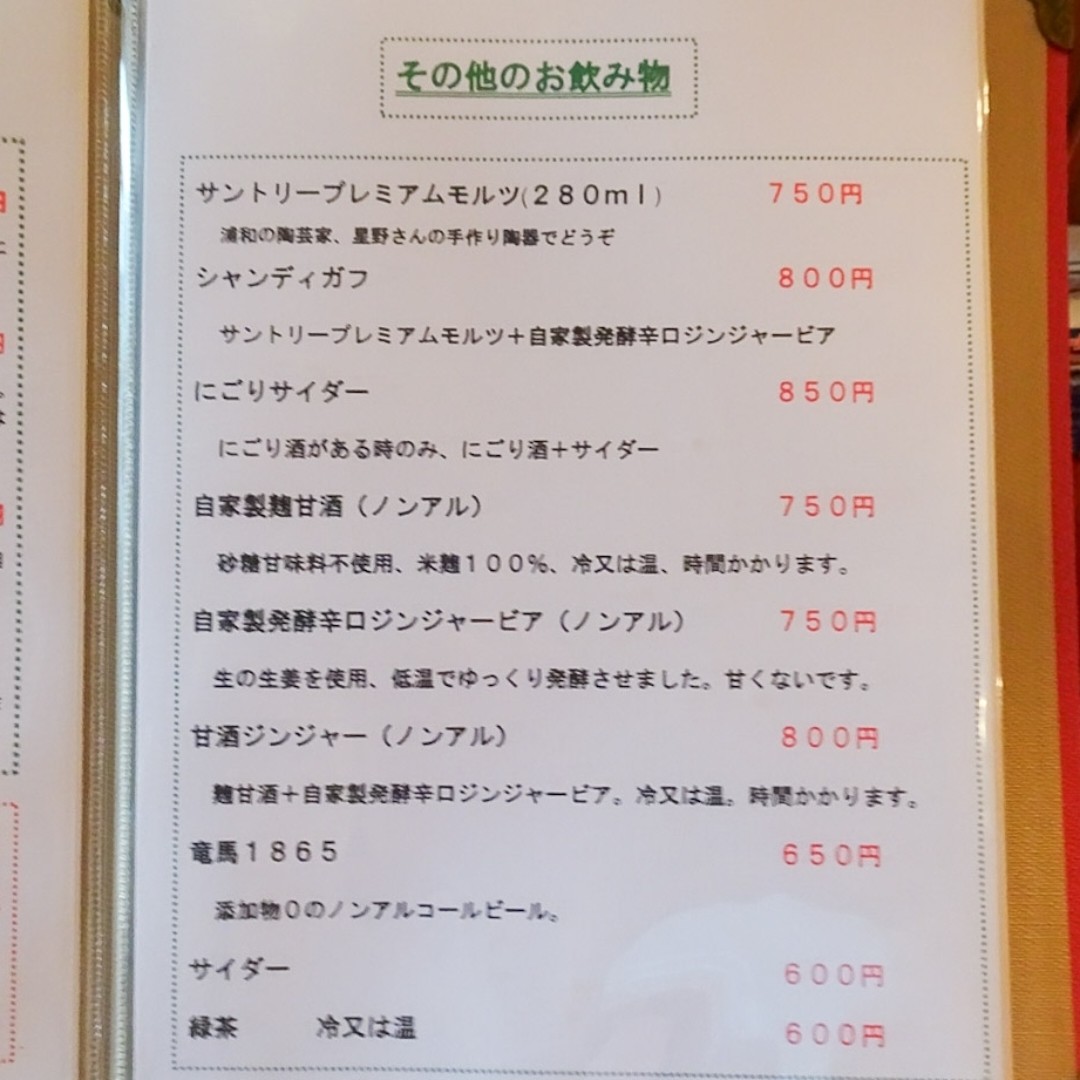 その他のお飲み物
サントリープレミアムモルツ(280ml) 750円
浦和の陶芸家、星野さんの手作り陶器でどうぞ
シャンディガフ 800円
サントリープレミアムモルツ+自家製発酵辛口ジンジャービア
にごりサイダー 850円
にごり酒がある時のみ、にごり酒+サイダー
自家製麹甘酒(ノンアル) 750円
砂糖甘味料不使用、米麹100%、冷又は温、時間かかります。
自家製発酵辛口ジンジャービア(ノンアル) 750円
生の生姜を使用、低温でゆっくり発酵させました。甘くないです。
甘酒ジンジャー(ノンアル) 800円
麹甘酒+自家製発酵辛口ジンジャービア。冷又は温。時間かかります。
竜馬1865 650円
添加物0のノンアルコールビール。
サイダー 600円
緑茶 冷又は温 600円